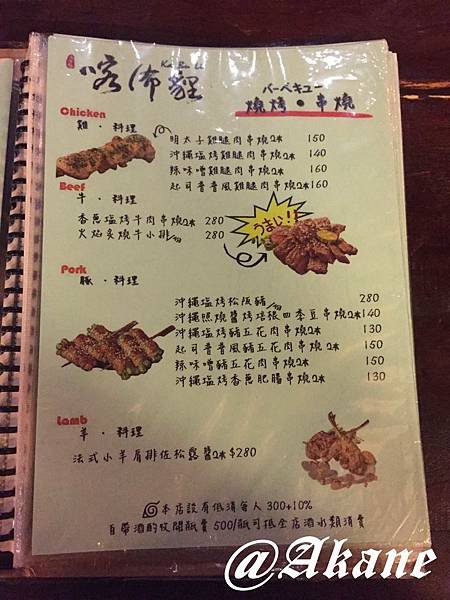 Ka Bu Li
喀佈貍
バーベキュー
燒烤・串燒
Chicken
雞・料理
明太子雞腿肉串燒2本 150
沖繩塩烤雞腿肉串燒2本 140
辣味噌雞腿肉串燒2本 160
起司普普風雞腿肉串燒2本 160
Beef
牛・料理
香蔥塩烤牛肉串燒2本 280
火焰炙燒牛小排 280
うまい!!
Pork
豚・料理
沖繩塩烤松阪豬 280
沖繩照燒醬烤培根四季豆串燒2本 140
沖繩塩烤豬五花肉串燒2本 130
起司普普風豬五花肉串燒2本 150
辣味噌豬五花肉串燒2本 150
沖繩塩烤香蔥肥腸串燒2本 130
Lamb
羊・料理
法式小羊肩排佐松露醬2本 $280
本店設有低消每人300+10%
自帶酒酌收開瓶費500/瓶可抵全店酒水類消費
@Akane